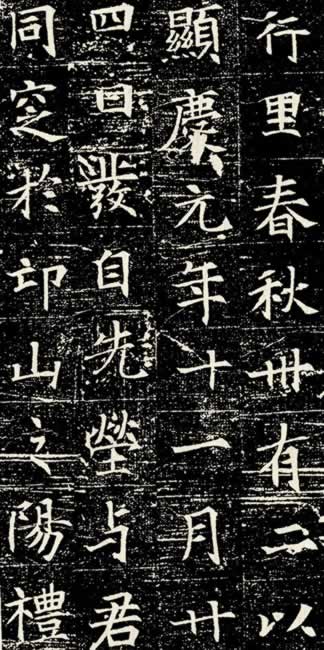 行里春秋卌有二以
顯慶元年十一月廿
四日發自先塋与君
同窆於邙山之陽禮